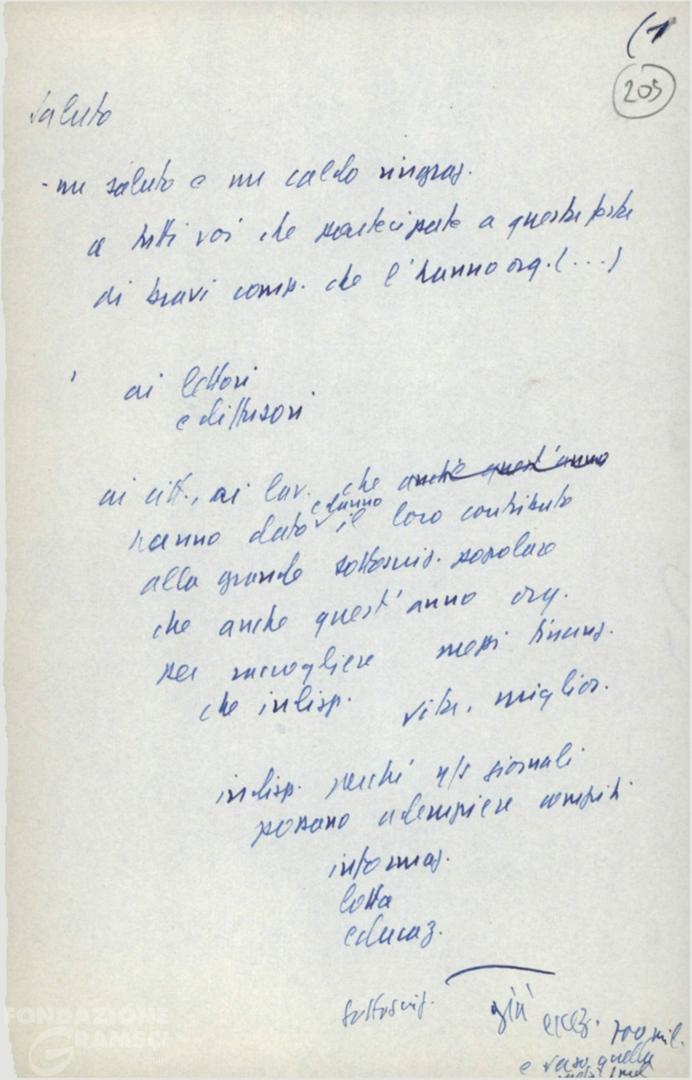 (1
205
Saluto
- un saluto e un caldo ringraz.
a tutti voi che partecipate a questa festa
ai bravi comp. che l'hanno org. (...)
ai lettori
e diffusori
ai citt., ai lav. che anche quest'anno
hanno dato e danno il loro contributo
alla grande sottoscriz. popolare
che anche quest'anno org.
per raccogliere mezzi finanz.
che indisp. vita, miglior.
indisp. perché n/s giornali
possano adempiere compiti
informaz.
lotta
educaz.
Sottoscriz. già 700 mil.
e verso quella
FONDAZIONE
GRAMSCI